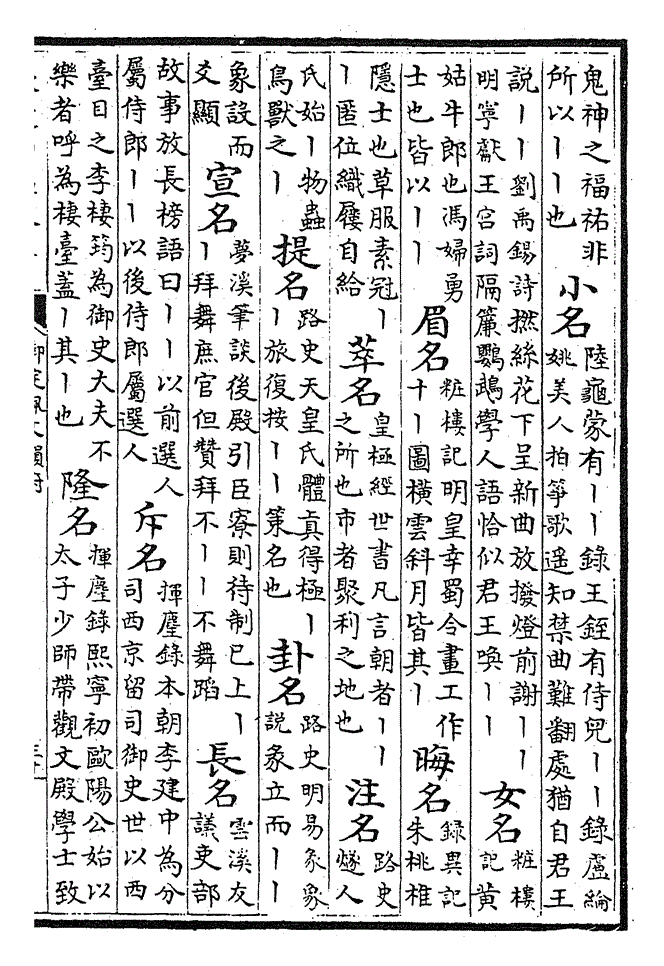 鬼神之福祐非
所以丨丨也
小名
陸龜蒙有丨丨錄王銍有侍兒丨丨錄盧綸
姚美人拍箏歌遥知禁曲難翻處猶自君王
説丨丨劉禹錫詩撚絲花下呈新曲放撥燈前謝丨丨
明寧獻王宫詞隔簾鸚鵡學人語恰似君王喚丨丨
女名
粧樓
記黄
姑牛郎也馮婦勇
士也皆以丨丨
眉名
粧樓記明皇幸蜀令畫工作
十丨圖橫雲斜月皆其丨
晦名
録異記
朱桃椎
隱士也草服素冠丨
丨匿位織屨自給
萃名
皇極經世書凡言朝者丨丨
之所也市者聚利之地也
注名
路史
燧人
氏始丨物蟲
鳥獸之丨
提名
路史天皇氏體真得極丨
丨旅復按丨丨策名也
卦名
路史明易象象
説象立而丨丨
象設而
爻顯
宣名
夢溪筆談後殿引臣寮則待制已上丨
丨拜舞庶官但贊拜不丨丨不舞蹈
長名
雲溪友
議吏部
故事放長榜語曰丨丨以前選人
屬侍郎丨丨以後侍郎屬選人
斥名
揮麈錄本朝李建中為分
司西京留司御史世以西
臺目之李棲筠為御史大夫不
樂者呼為棲臺蓋丨其丨也
隆名
揮麈錄熙寧初歐陽公始以
太子少師帶觀文殿學士致